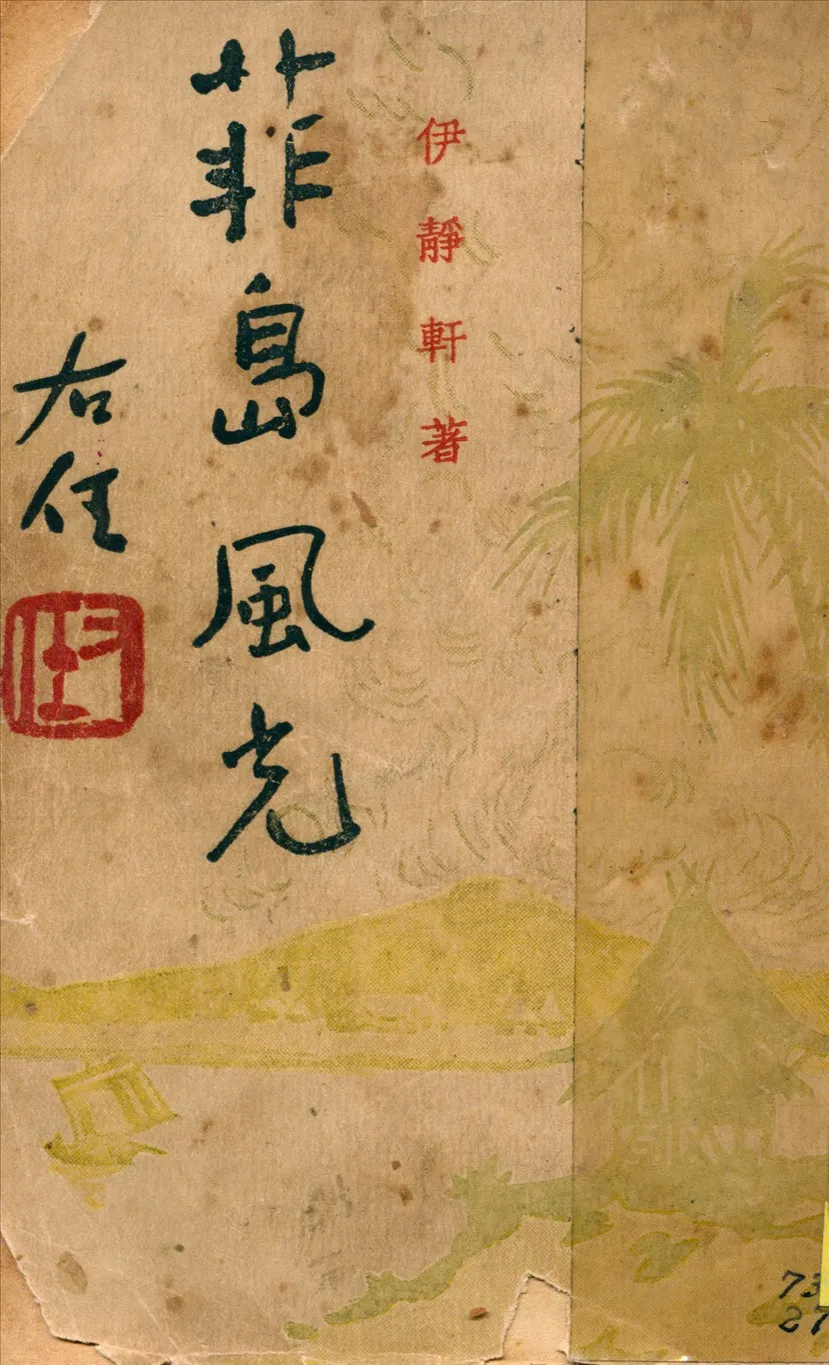 伊靜軒著
菲島風光
右任
73
27